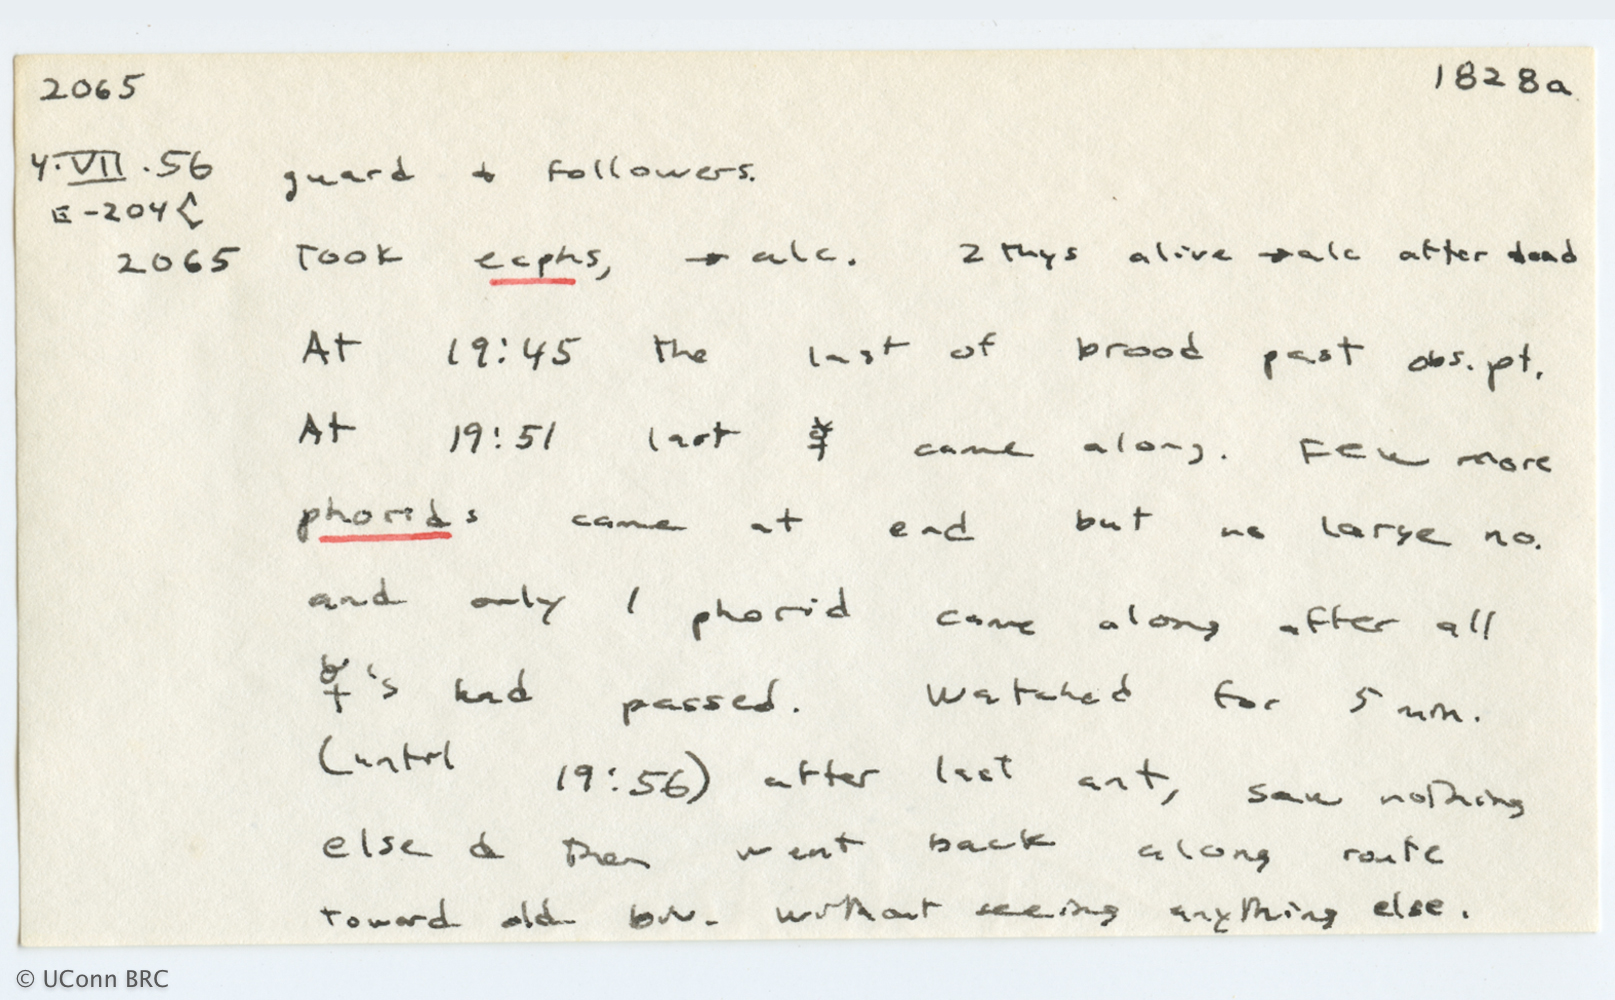 2065 1828a
4.VII.56 guard & followers.
E-204
2065 Took ecphs, → alc. 2 thys alive → alc after dead
At 19:45 the last of brood past obs. pt.
At 19:51 last ☿ came along. Few more
phorids came at end but no large no.
and only 1 phorid came along after all
☿'s had passed. Watched for 5 min.
(until 19:56) after last ant, saw nothing
else & then went back along route
toward old biv. without seeing anything else.
© UConn BRC